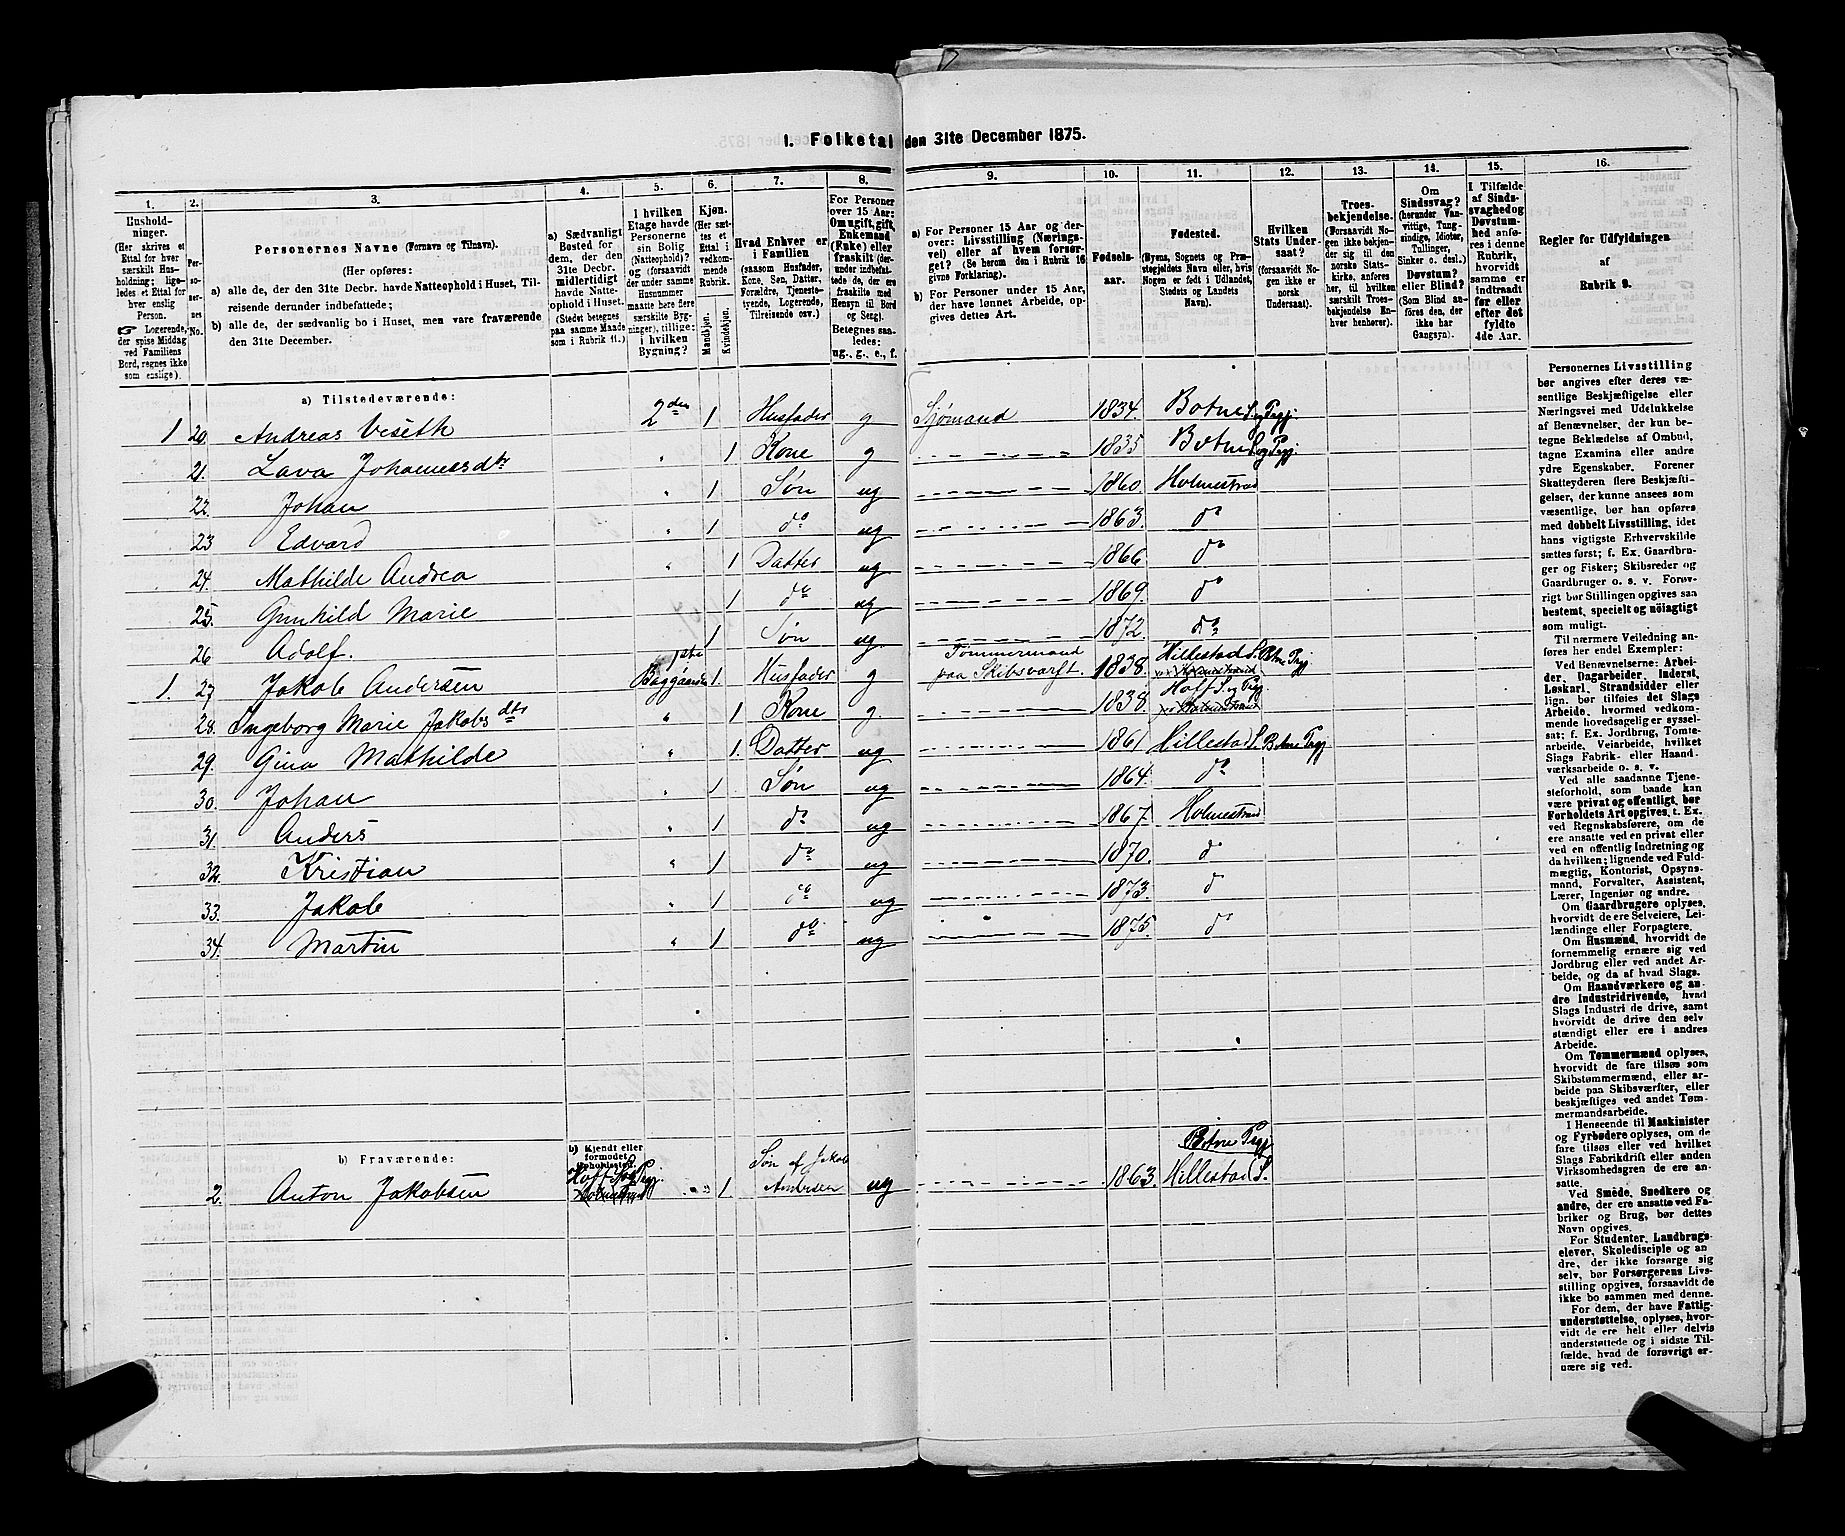 1. Folketal den 31te December 1875.
1. 2. 3. 4. 5. 6. 7. 8. 9. 10. 11. 12. 13. 14. 15. 16.
Husholdninger.
(Her skrives et Ettal for hver særskilt Husholdning; ligeledes et Ettal for hver enslig Person.
☞ Logerende, der spise Middag ved Familiens Bord, regnes ikke som enslige).
Personernes No.
Personernes Navne (Fornavn og Tilnavn).
(Her opføres:
a) alle de, der den 31te Decbr. havde Natteophold i Huset, Tilreisende derunder indbefattede;
b) alle de, der sædvanlig bo i Huset, men vare fraværende den 31te December.
a) Sædvanligt Bosted for dem, der den 31te Decbr. midlertidigt havde Natteophold i Huset. (Stedet betegnes paa samme Maade som i Rubrik 11.)
I hvilken Etage havde Personerne sin Bolig (Natteophold)? og (forsaavidt der under samme Husnummer maatte høre flere særskilte Bygninger), tillige: i hvilken Bygning?
Kjøn. (Her sættes et Ettal i vedkommende Rubrik.
Mandkjøn. Kvindekjøn.
Hvad Enhver er i Familien (saasom Husfader, Kone, Søn, Datter, Forældre, Tjenestetyende, Logerende, Tilreisende osv.)
For Personer over 15 Aar: Om ugift, gift, Enkemand (Enke) eller fraskilt (derunder indbefattede de, der ere fraskilte med Hensyn til Bord og Seng). Betegnes saaledes: ug., g., e., f.
a) For Personer 15 Aar og derover: Livsstilling (Næringsvei) eller af hvem forsørget? (Se herom den i Rubrik 16 givne Forklaring).
b) For Personer under 15 Aar, der have lønnet Arbeide, opgives dettes Art.
Fødselsaar.
Fødested.
(Byens, Sognets og Præstegjeldets Navn eller, hvis Nogen er født i Udlandet, Stedets og Landets Navn).
Hvilken Stats Undersaat? (forsaavidt Nogen ikke er norsk Undersaat).
Troesbekjendelse. (Forsaavidt Nogen ikke bekjender sig til den norske Statskirke, anføres her, til hvilken særskilt Troesbekjendelse Enhver henhører).
Om Sindssvag? (herunder Vanvittige, Tungsindige, Idioter, Tullinger, Sinker o. desl.) Døvstum? eller Blind? (Som Blind anføres den, der ikke har Gangsyn).
I Tilfælde af Sindssvaghed og Døvstumhed anføres i denne Rubrik, hvorvidt samme er indtraadt før eller efter det fyldte 4de Aar.
Regler for Udfyldningen af Rubrik 9.
a) Tilstedeværende:
1 20. Andreas Veseth 2den 1 Husfader g Sjømand 1834. Botne S. og Prgj.
21. Lava Johannesdtr " 1 Kone g 1835 Botne S. og Prgj.
22. Johan " 1 Søn ug 1860. Holmestrand
23 Edvard " 1 do ug 1863. do
24. Mathilde Andrea " 1 Datter ug 1866 do
25. Gunhild Marie 1 do ug 1869. do
26 Adolf. 1 Søn ug. 1872. do
1. 27 Jakob Andersen 1ste Baggaarden 1. Husfader g Tømmermand paa Skibsværft. 1838. Hillestad S. Botne Prgj
28. Ingeborg Marie Jakobsdtr " 1 Kone g. 1838. Hoff S. og Prgj.
29. Gina Mathilde " 1. Datter ug 1861 Hillestad S. Botne Prgj
30. Johan " 1 Søn ug 1864. do
31. Anders " 1 do ug 1867. Holmestrand
32. Kristian " 1 do ug 1870. do
33. Jakob " 1 do ug 1873. do
34. Martin " 1 do ug 1875. do
b) Fraværende:
b) Kjendt eller formodet Opholdssted.
2. Anton Jakobsen Hoff S. og Prgj. " 1 Søn af Jakob Andersen ug 1863. Hillestad S. Botne Prgj
Personernes Livsstilling
bør angives efter deres væ-
sentlige Beskjæftigelse eller
Næringsvei med Udelukkelse
af Benævnelser, der kun be-
tegne Beklædelse af Ombud,
tagne Examina eller andre
ydre Egenskaber. Forener
Skatteyderen flere Beskjæfti-
gelser, der kunne ansees som
væsentlige, bør han opføres
med dobbelt Livsstilling, idet
hans vigtigste Erhvervskilde
sættes først; f. Ex. Gaardbru-
ger og Fisker; Skibsreder og
Gaardbruger o. s. v. Forøv-
rigt bør Stillingen opgives saa
bestemt, specielt og nöiagtigt
som muligt.
Til nærmere Veiledning an-
føres her endel Exempler:
Ved Benævnelserne: Arbei-
der, Dagarbeider, Inderst,
Løskarl, Strandsidder eller
lign. bør tilføies det Slags
Arbeide, hvormed vedkom-
mende hovedsagelig er syssel-
sat; f. Ex. Jordbrug, Tomte-
arbeide, Veiarbeide, hvilket
Slags Fabrik- eller Haand-
værksarbeide o. s. v.
Ved alle saadanne Tjene-
steforhold, som baade kan
være privat og offentligt, bør
Forholdets Art opgives, t. Ex.
ved Regnskabsførere, om de
ere ansatte ved en privat eller
ved en offentlig Indretning og
da hvilken; lignende ved Fuld-
mægtig, Kontorist, Opsyns-
mand, Forvalter, Assistent,
Lærer, Ingeniør og andre.
Om Gaardbrugere oplyses,
hvorvidt de ere Selveiere, Lei-
lændinge eller Forpagtere.
Om Husmænd, hvorvidt de
fornemmelig ernære sig ved
Jordbrug eller ved andet Ar-
beide, og da af hvad Slags.
Om Haandværkere og an-
dre Industridrivende, hvad
Slags Industri de drive, samt
hvorvidt de drive den selv
stændigt eller ere i andres
Arbeide.
Om Tømmermænd oplyses,
hvorvidt de fare tilsøs som
Skibstømmermænd, eller ar-
beide paa Skibsværfter, eller
beskjæftiges ved andet Tøm-
mermandsarbeide.
I Henseende til Maskinister
og Fyrbødere oplyses, om de
fare tilsøs eller ved hvilket
Slags Fabrikdrift eller anden
Virksomhedsgren de ere an-
satte.
Ved Smede, Snedkere og
andre, der ere ansatte ved Fa-
briker og Brug, bør dettes
Navn opgives.
For Studenter, Landbrugs-
elever, Skoledisciple og an
dre, der ikke forsørge sig
selv, bør Forsørgerens Livs-
stilling opgives, forsaavidt de
ikke bo sammen med denne.
For dem, der have Fattig-
understøttelse, oplyses, hvor-
vidt de ere helt eller delvis
understøttede og i sidste Til-
fælde, hvad de forøvrigt er-
nære sig ved.